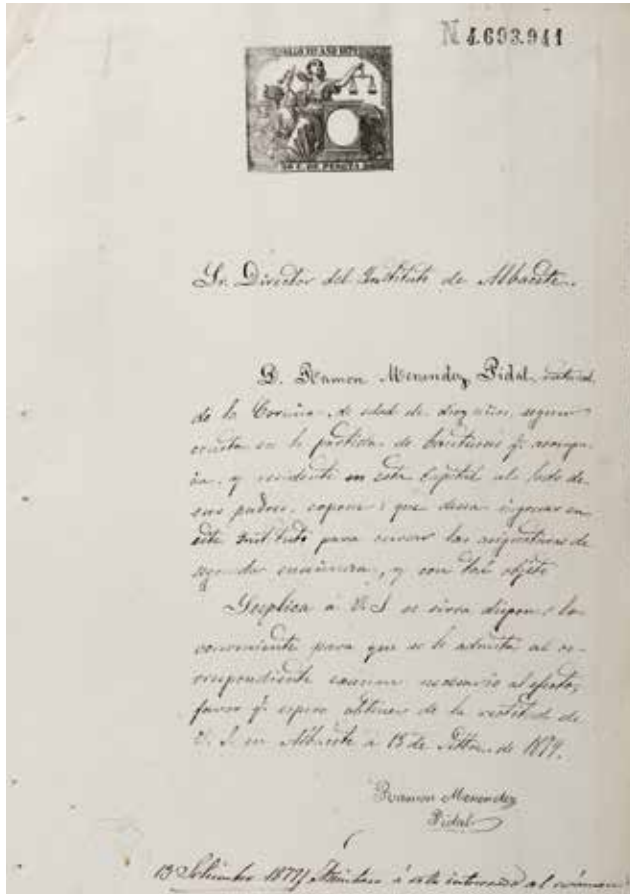 N 4.693.941
SELLO 11º AÑO 1879
50 C. DE PESETA
Sr. Director del Instituto de Albacete.
D. Ramon Menendez Pidal, natural
de la Coruña, de edad de diez años, segun
consta en la partida de bautismo q. acompa-
ña, y residente en esta Capital al lado de
sus padres, expone: que desea ingresar en
este Instituto para cursar las asignaturas de
segunda enseñanza, y con tal objeto
Suplica á V. S. se sirva disponer lo
conveniente para que se le admita al co-
rrespondiente examen necesario al efecto,
favor q. espera obtener de la rectitud de
V. S. en Albacete á 13 de Setbre. de 1879.
Ramon Menendez
Pidal
13 Setiembre 1879 Admitase á este interesado al exámen